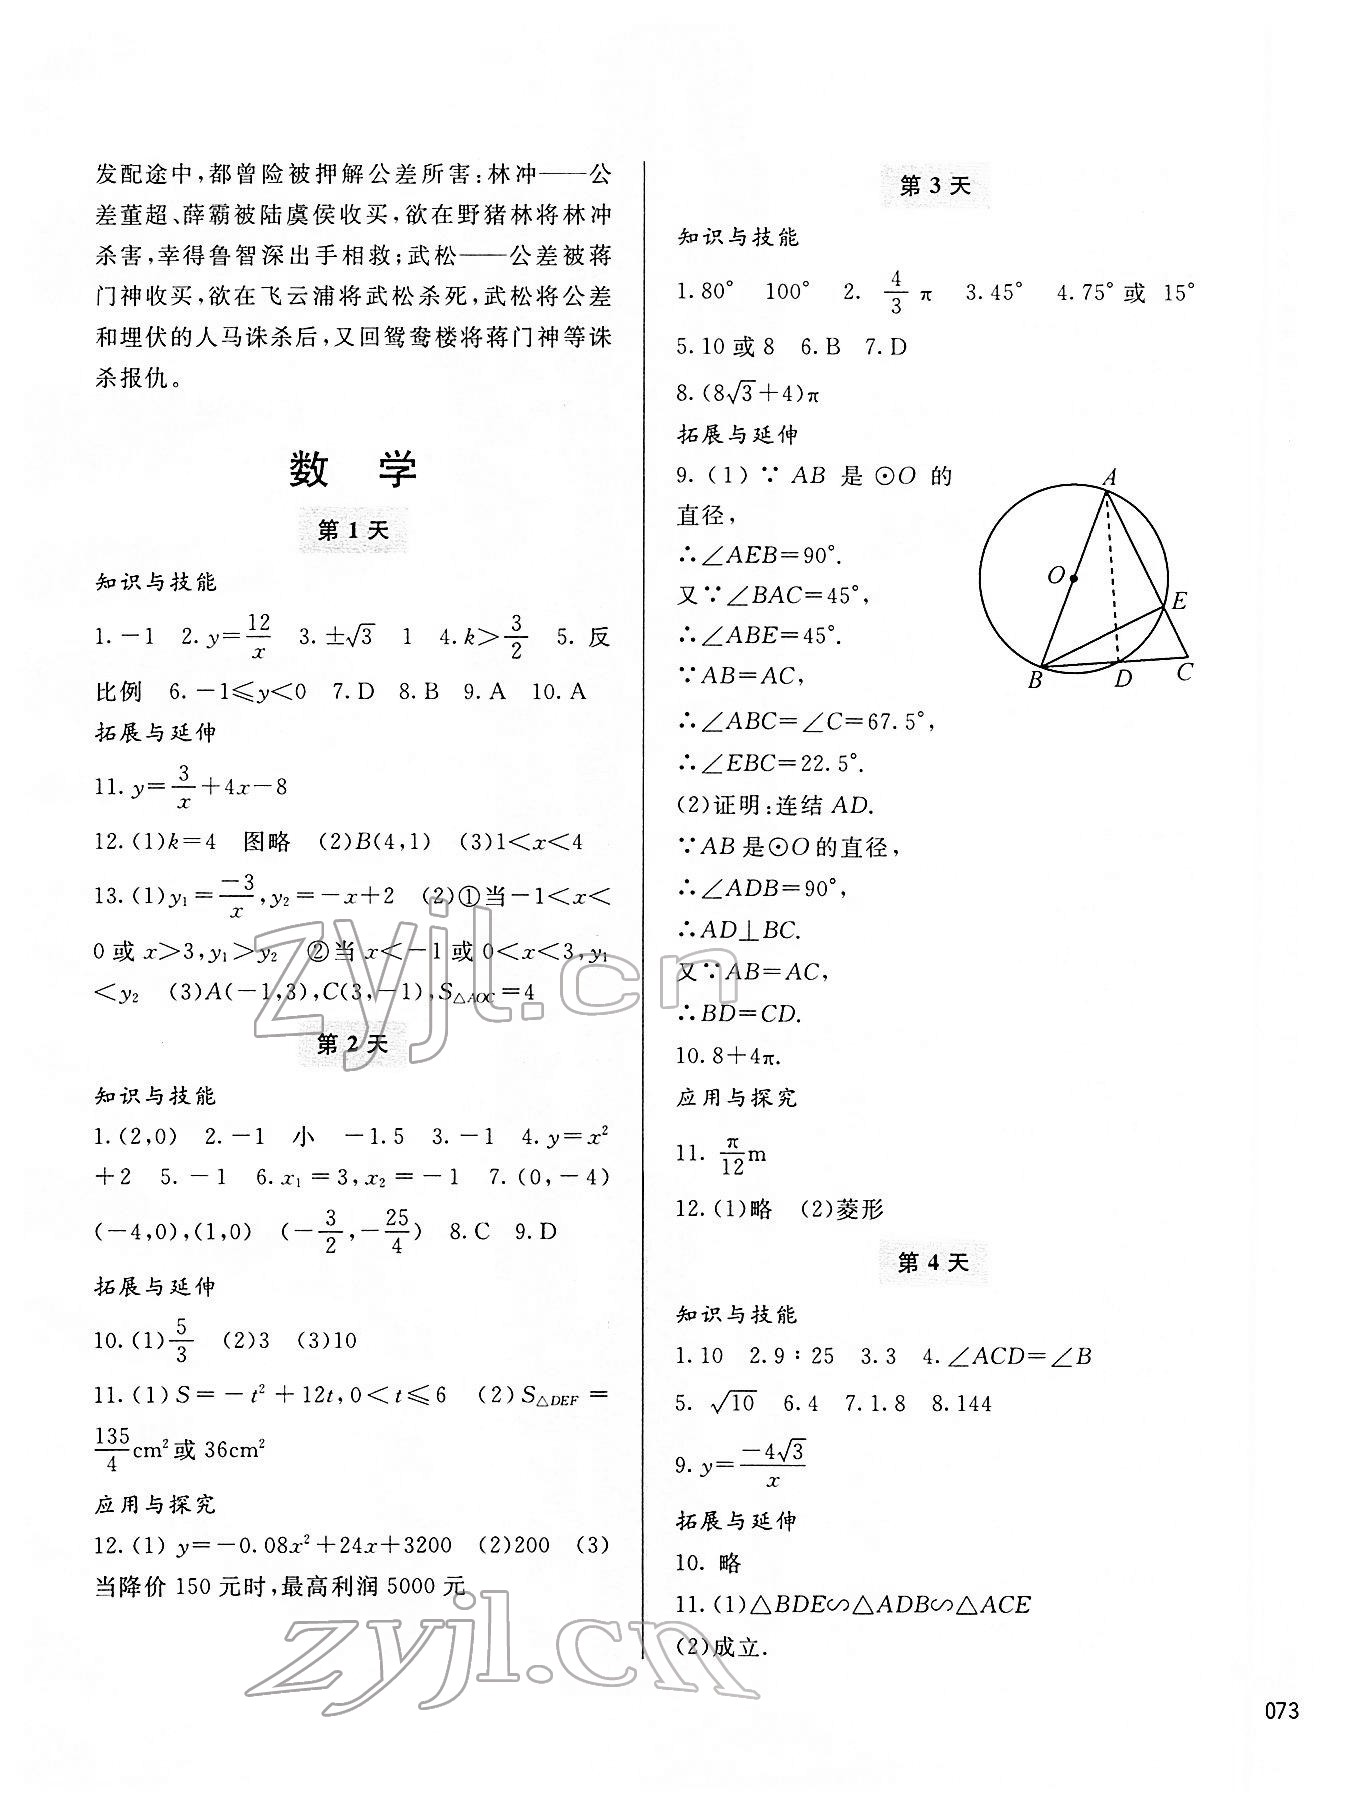 发配途中,都曾险被押解公差所害:林冲——公
差董超、薛霸被陆虞侯收买,欲在野猪林将林冲
杀害,幸得鲁智深出手相救;武松——公差被蒋
门神收买,欲在飞云浦将武松杀死,武松将公差
和埋伏的人马诛杀后,又回鸳鸯楼将蒋门神等诛
杀报仇。
数 学
第1天
知识与技能
1.-1 2.y=12/x 3.±√3 1 4.k>3/2 5.反
比例 6.-1≤y<0 7.D 8.B 9.A 10.A
拓展与延伸
11.y=3/x+4x-8
12.(1)k=4 图略 (2)B(4,1) (3)1<x<4
13.(1)y₁=-3/x,y₂=-x+2 (2)①当-1<x<
0或x>3,y₁>y₂ ②当x<-1或0<x<3,y₁
<y₂ (3)A(-1,3),C(3,-1),S△AOC=4
第2天
知识与技能
1.(2,0) 2.-1 小 -1.5 3.-1 4.y=x²
+2 5.-1 6.x₁=3,x₂=-1 7.(0,-4)
(-4,0),(1,0) (-3/2,-25/4) 8.C 9.D
拓展与延伸
10.(1)5/3 (2)3 (3)10
11.(1)S=-t²+12t,0<t≤6 (2)S△DEF=
135/4cm²或36cm²
应用与探究
12.(1)y=-0.08x²+24x+3200 (2)200 (3)
当降价150元时,最高利润5000元
第3天
知识与技能
1.80° 100° 2.4/3π 3.45° 4.75°或 15°
5.10或8 6.B 7.D
8.(8√3+4)π
拓展与延伸
9.(1)∵AB是⊙O的
直径,
∴∠AEB=90°.
又∵∠BAC=45°,
∴∠ABE=45°.
∵AB=AC,
∴∠ABC=∠C=67.5°,
∴∠EBC=22.5°.
(2)证明:连结AD.
∵AB是⊙O的直径,
∴∠ADB=90°,
∴AD⊥BC.
又∵AB=AC,
∴BD=CD.
A
O
E
B
D
C
10.8+4π.
应用与探究
11.π/12m
12.(1)略 (2)菱形
第4天
知识与技能
1.10 2.9∶25 3.3 4.∠ACD=∠B
5.√10 6.4 7.1.8 8.144
9.y=-4√3/x
拓展与延伸
10.略
11.(1)△BDE∽△ADB∽△ACE
(2)成立.
073
zyjl.cn
zyjl.cn